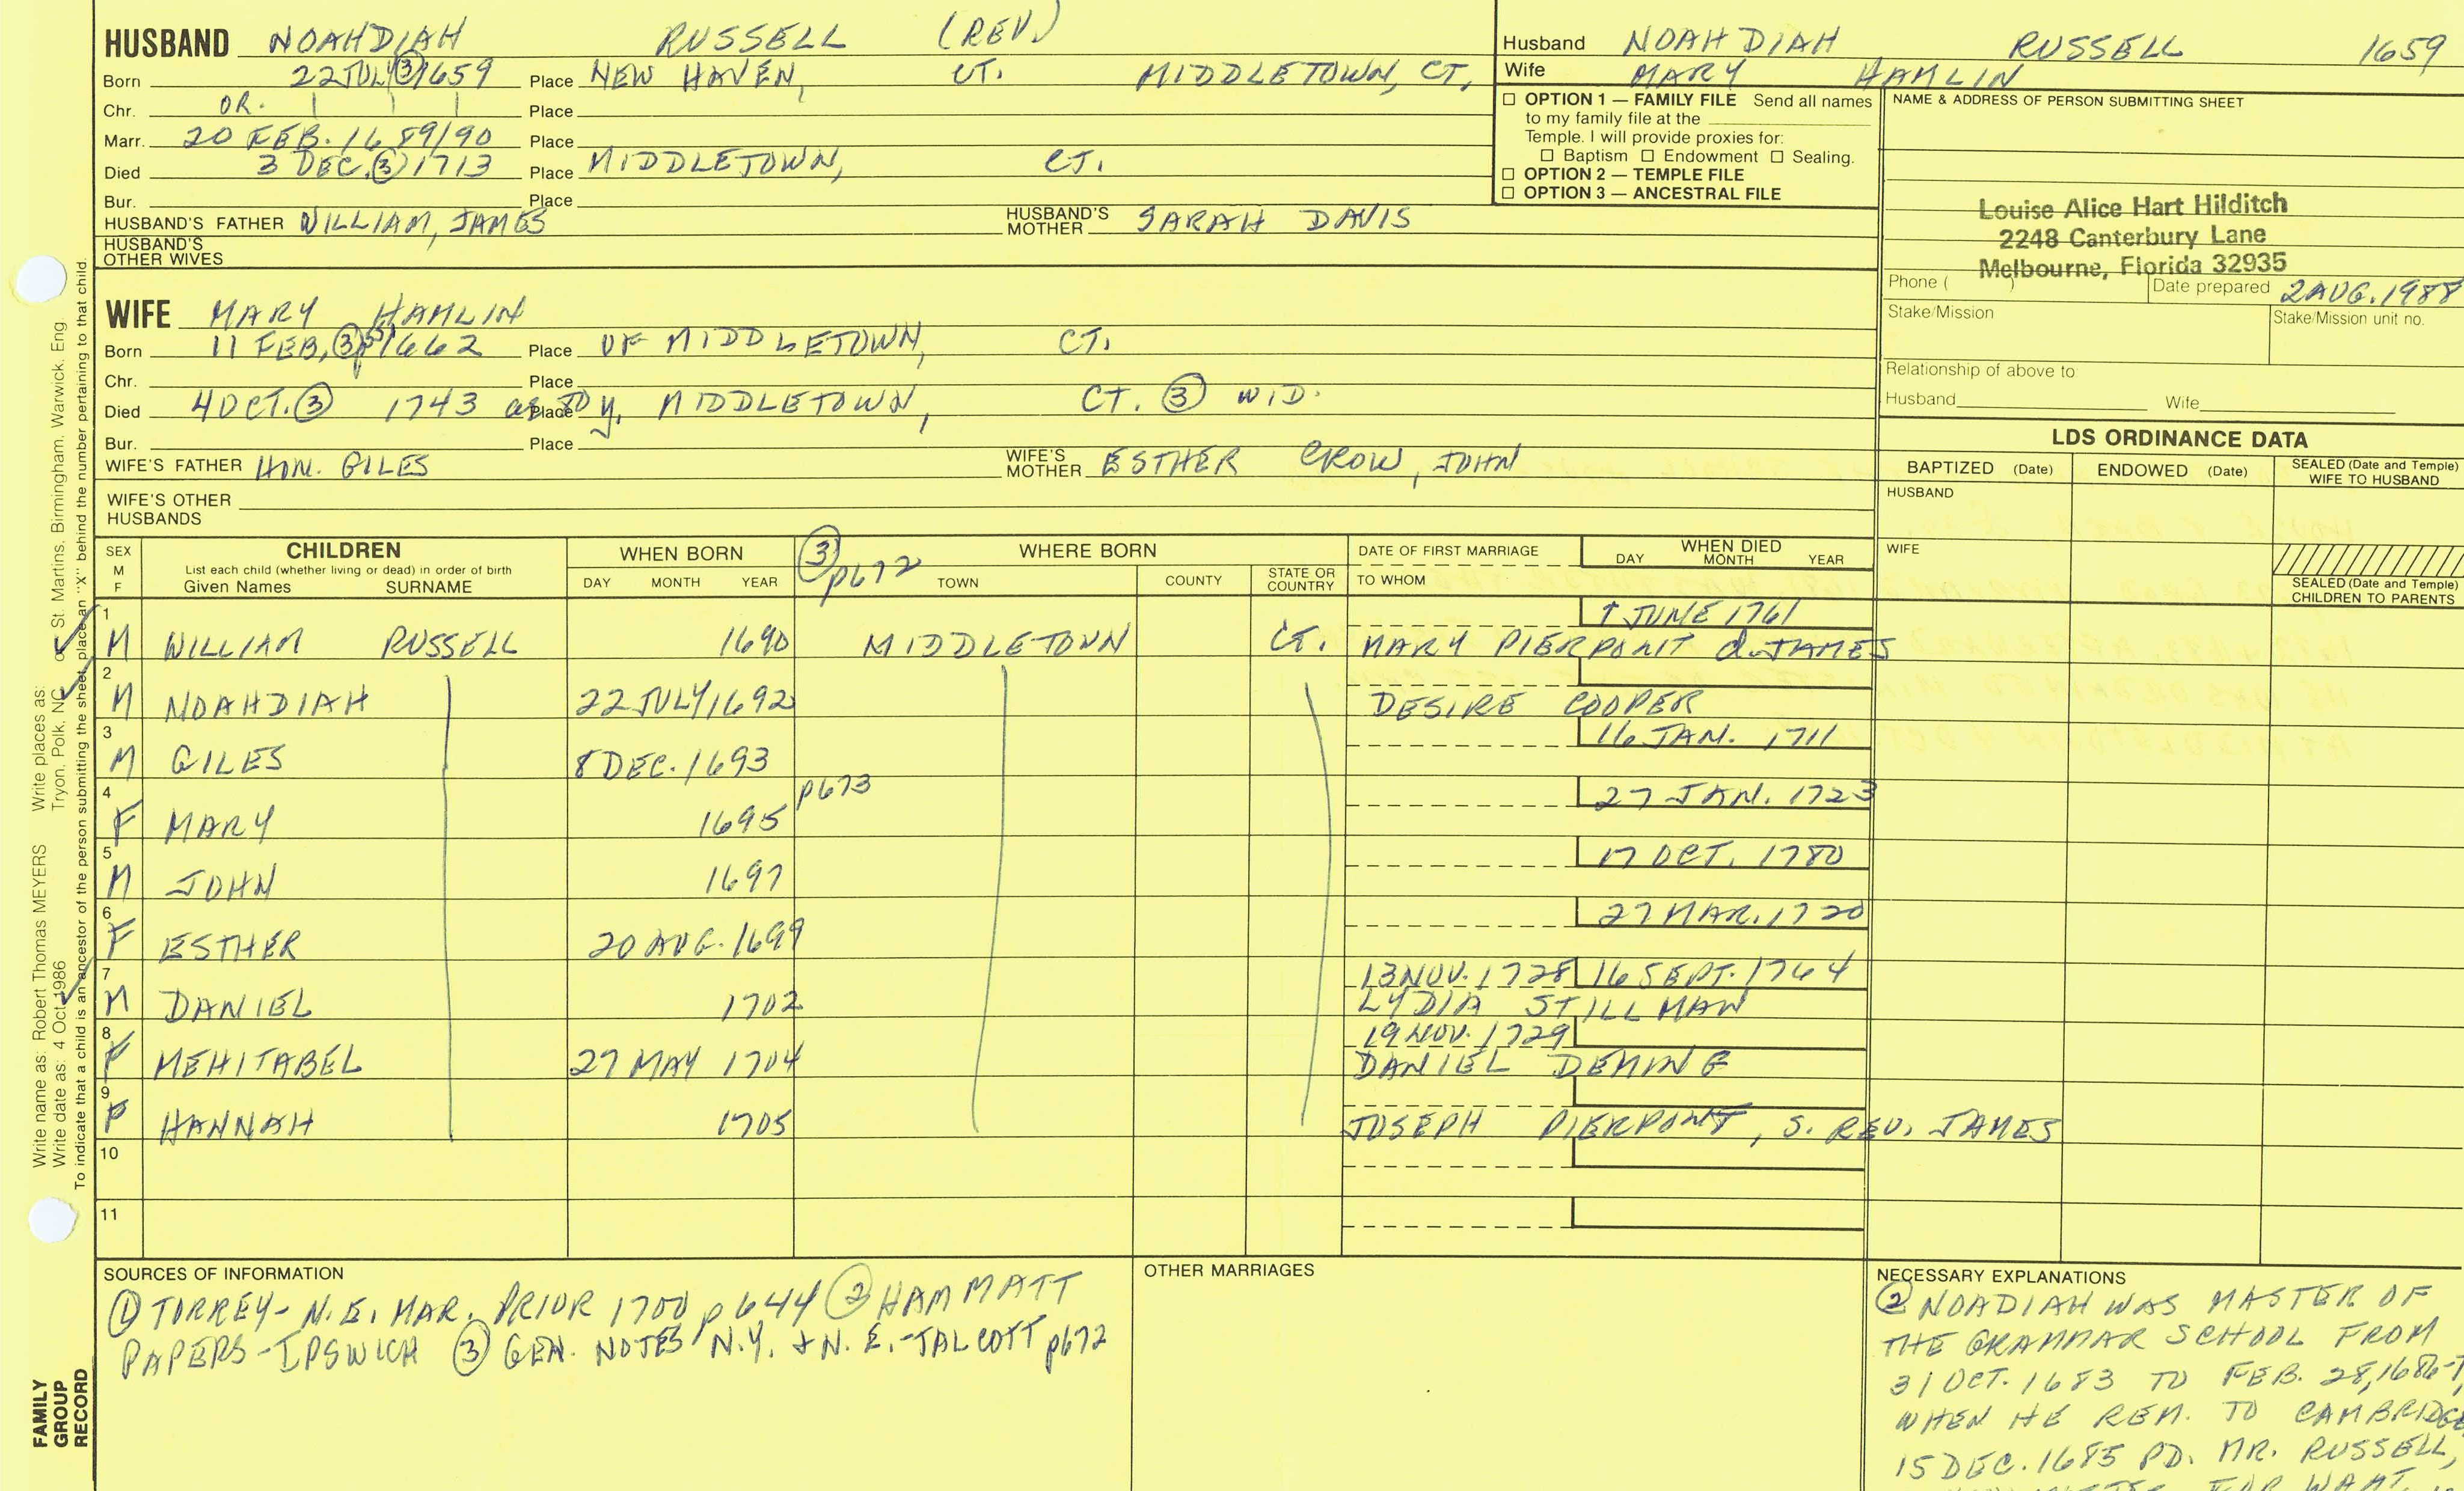 HUSBAND NOAHDIAH RUSSELL (REV)
Born 22 JULY ③ 1659 Place NEW HAVEN, CT. MIDDLETOWN, CT,
Chr. OR. Place
Marr. 20 FEB. 1689/90 Place
Died 3 DEC. ③ 1713 Place MIDDLETOWN, CT.
Bur. Place
HUSBAND'S FATHER WILLIAM, JAMES HUSBAND'S MOTHER SARAH DAVIS
HUSBAND'S OTHER WIVES
Husband NOAHDIAH RUSSELL 1659
Wife MARY HAMLIN
☐ OPTION 1 — FAMILY FILE Send all names
to my family file at the
Temple. I will provide proxies for:
☐ Baptism ☐ Endowment ☐ Sealing.
☐ OPTION 2 — TEMPLE FILE
☐ OPTION 3 — ANCESTRAL FILE
NAME & ADDRESS OF PERSON SUBMITTING SHEET
Louise Alice Hart Hilditch
2248 Canterbury Lane
Melbourne, Florida 32935
Phone ( ) Date prepared 2 AUG. 1988
Stake/Mission Stake/Mission unit no.
Relationship of above to
Husband Wife
WIFE MARY HAMLIN
Born 11 FEB, ③ 1662 Place OF MIDDLETOWN, CT.
Chr. Place
Died 4 OCT. ③ 1743 Place MIDDLETOWN, CT. ③ WID.
Bur. Place
WIFE'S FATHER HON. GILES WIFE'S MOTHER ESTHER CROW, JOHN
WIFE'S OTHER HUSBANDS
LDS ORDINANCE DATA
BAPTIZED (Date) ENDOWED (Date) SEALED (Date and Temple) WIFE TO HUSBAND
HUSBAND
WIFE
SEALED (Date and Temple) CHILDREN TO PARENTS
SEX M F CHILDREN WHEN BORN ③ p672 WHERE BORN DATE OF FIRST MARRIAGE WHEN DIED
List each child (whether living or dead) in order of birth
Given Names SURNAME DAY MONTH YEAR TOWN COUNTY STATE OR COUNTRY TO WHOM DAY MONTH YEAR
1 1 JUNE 1761
M WILLIAM RUSSELL 1690 MIDDLETOWN CT. MARY PIERPONT d. JAMES
2
M NOAHDIAH 22 JULY 1692 DESIRE COOPER
3 16 JAN. 1711
M GILES 8 DEC. 1693
4 p673 27 JAN. 1723
F MARY 1695
5 17 OCT. 1780
M JOHN 1697
6 27 MAR. 1720
F ESTHER 20 AUG. 1699
7 13 NOV. 1728 16 SEPT. 1764
M DANIEL 1702 LYDIA STILLMAN
8 19 NOV. 1729
F MEHITABEL 27 MAY 1704 DANIEL DEMING
9
F HANNAH 1705 JOSEPH PIERPONT, S. REV. JAMES
10
11
SOURCES OF INFORMATION
① TORREY- N.E. MAR. PRIOR 1700 p 644 ② HAMMATT
PAPERS-IPSWICH ③ GEN. NOTES N.Y. & N.E.-TALCOTT p672
OTHER MARRIAGES
NECESSARY EXPLANATIONS
② NOADIAH WAS MASTER OF
THE GRAMMAR SCHOOL FROM
31 OCT. 1683 TO FEB. 28, 1686-7,
WHEN HE REM. TO CAMBRIDGE
15 DEC. 1685 PD. MR. RUSSELL,
FOR WANT
Write name as: Robert Thomas MEYERS Write places as: Tryon, Polk, NC or St. Martins, Birmingham, Warwick, Eng.
Write date as: 4 Oct 1986
To indicate that a child is an ancestor of the person submitting the sheet, place an "X" behind the number pertaining to that child.
FAMILY
GROUP
RECORD